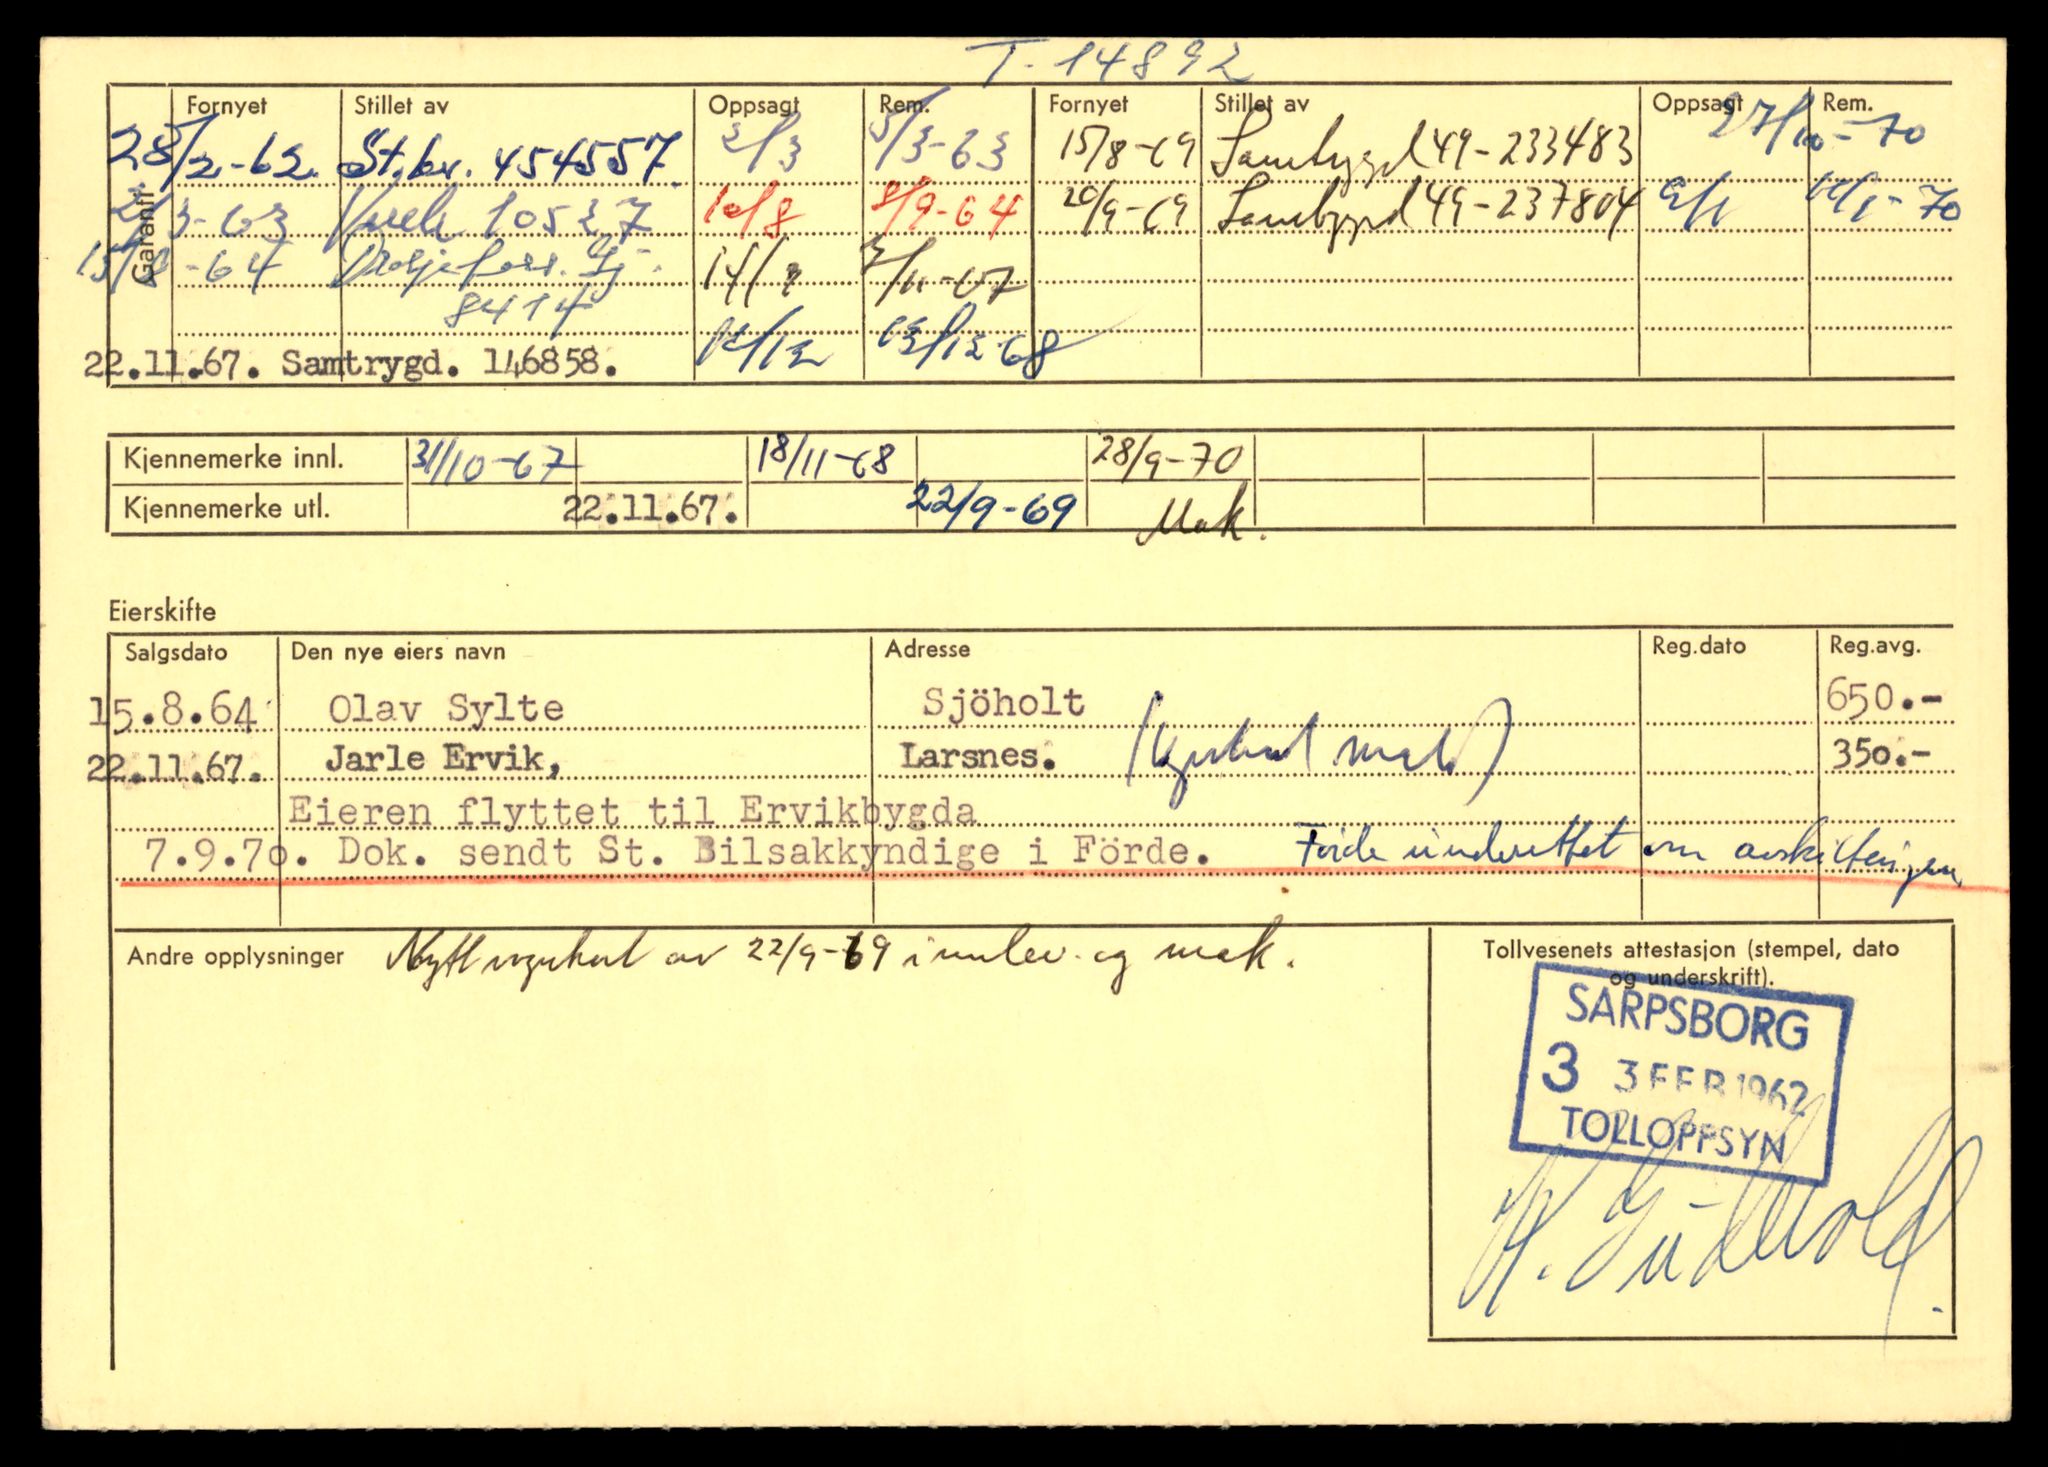 T. 14892
Fornyet Stillet av Oppsagt Rem. Fornyet Stillet av Oppsagt Rem.
Garanti
28/2-62. St.br. 454557. 2/3 5/3-63 15/8-69 Samtrygd 49-233483 27/10-70
3-63 10527 10/8 8/9-64 20/9-69 Samtrygd 49-237804 9/1 -70
15/8-64 8414
22.11.67. Samtrygd. 146858. 12/12 13/12-68
Kjennemerke innl. 31/10-67 18/11-68 28/9-70
Kjennemerke utl. 22.11.67. 22/9-69 Mak.
Eierskifte
Salgsdato Den nye eiers navn Adresse Reg.dato Reg.avg.
15.8.64 Olav Sylte Sjöholt 650.-
22.11.67. Jarle Ervik, Larsnes. (vognkort mak.) 350.-
Eieren flyttet til Ervikbygda
7.9.70. Dok. sendt St. Bilsakkyndige i Förde. Förde underettet om avskiltingen.
Andre opplysninger Nytt vognkort av 22/9-69 innlev. og mak.
Tollvesenets attestasjon (stempel, dato
og underskrift).
SARPSBORG
3 3 FEB 1962
TOLLOPPSYN